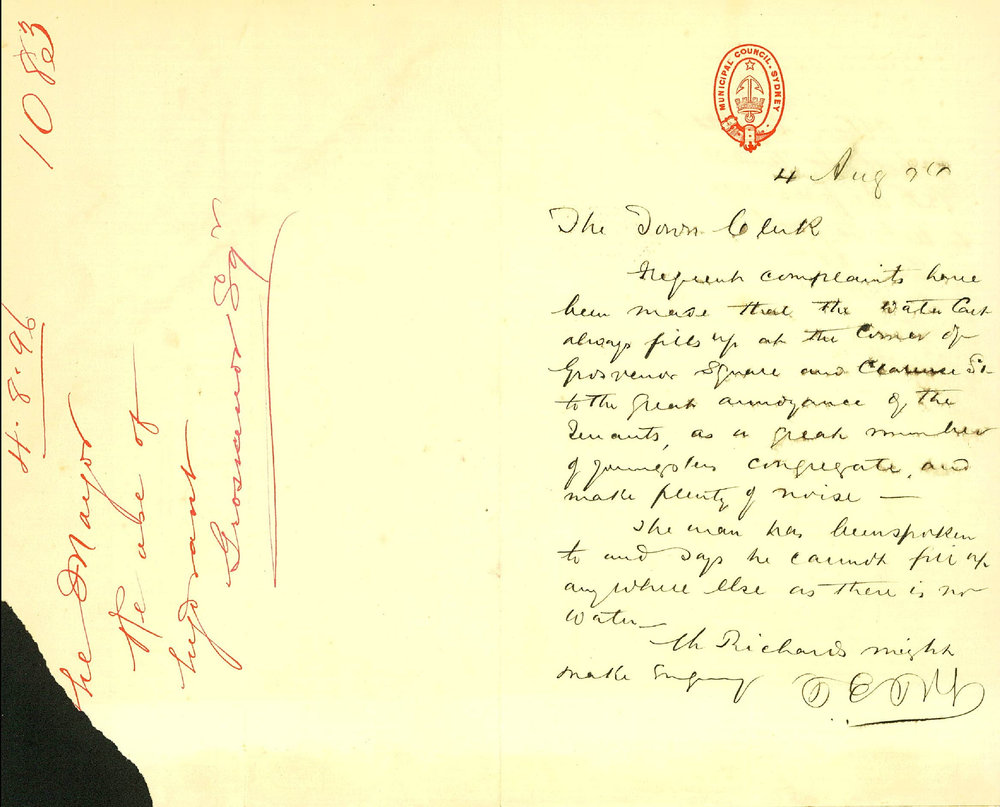 1083
4.8.96
he Mayor
Re use of
hydrant
Grosvenor Sqr
MUNICIPAL COUNCIL. SYDNEY
4 Aug
The Town Clerk
Frequent complaints have
been made that the Water Cart
always fills up at the Corner of
Grosvenor Square and Clarence St
to the great annoyance of the
Tenants, as a great number
of youngsters congregate, and
make plenty of noise —
The man has been spoken
to and says he cannot fill up
anywhere else as there is no
water —
Mr Richards might
make Enquiry